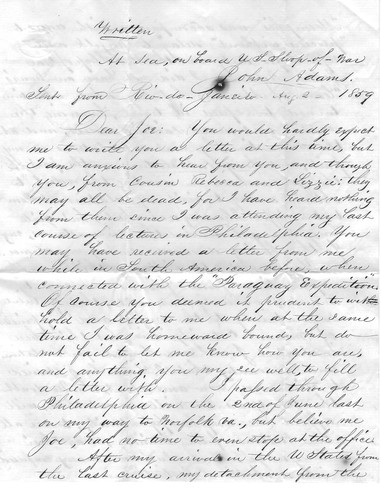 Written
At Sea, on board U S Sloop-of-War
John Adams.
Sent from Rio-de-Janeiro Aug 2 1859
Dear Joe: You would hardly expect
me to write you a letter at this time, but
I am anxious to hear from you, and through
you from Cousin Rebecca and Lizzie: they
may all be dead, for I have heard nothing
from them since I was attending my last
course of lectures in Philadelphia. You
may have received a letter from me
while in South America before, when
connected with the "Paraguay Expedition".
Of course you deemed it prudent to with
hold a letter to me when at the same
time I was homeward bound, but do
not fail to let me know how you are,
and anything, you may see well, to fill
a letter with. I passed through
Philadelphia on the 2nd of June last
on my way to Norfolk Va., but believe me
Joe, had no time to even stop at the office
After my arrival in the U States from
the last cruise, my detachment from the